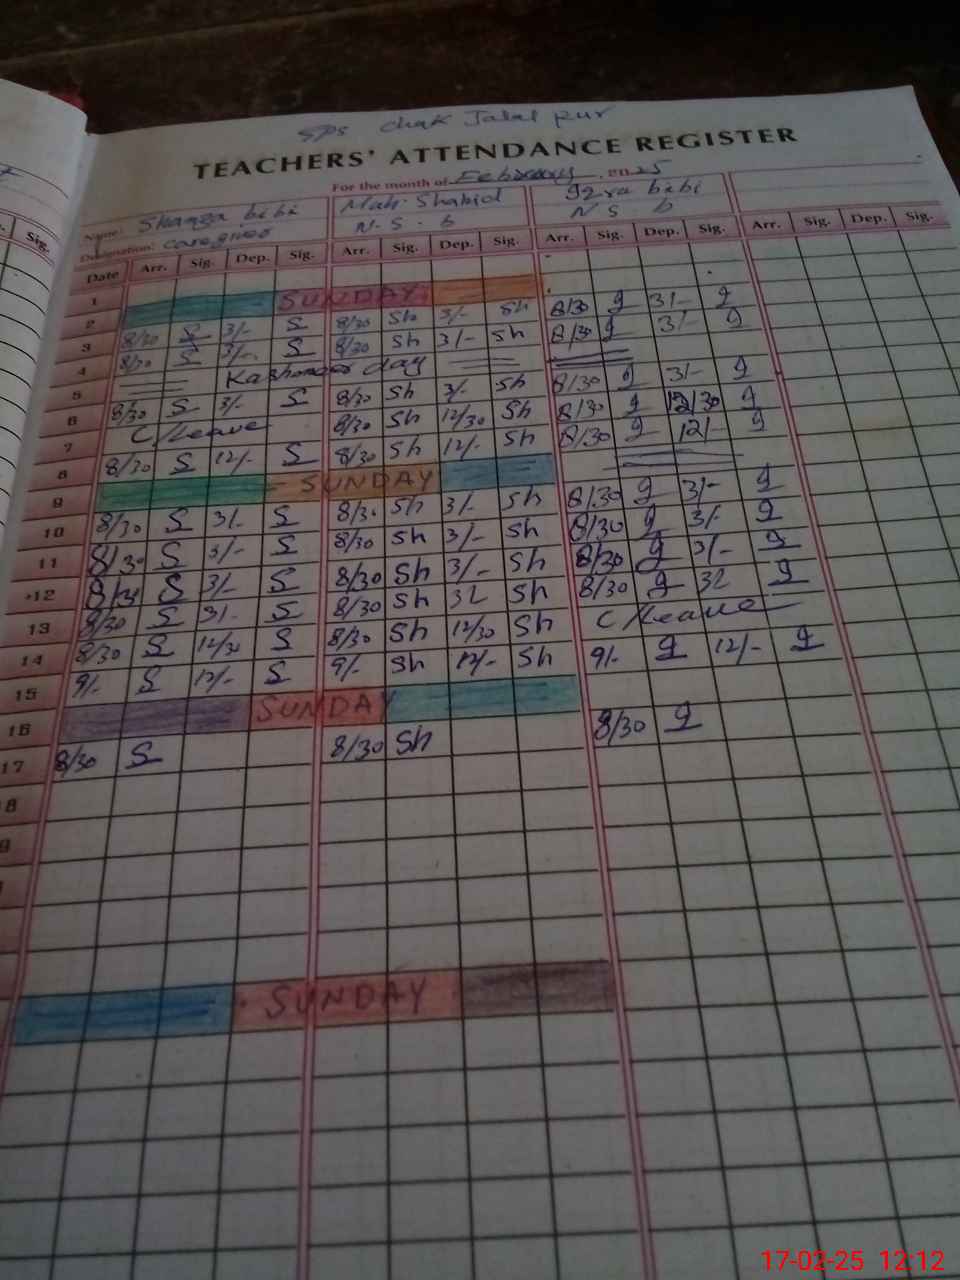 SPS Chak Jalal Pur
TEACHERS' ATTENDANCE REGISTER
For the month of February 2025
Name: Shanza bibi Mah. Shahid Iqra bibi
Designation: Caregiver N.S.b N.S.b
Date Arr. Sig. Dep. Sig. Arr. Sig. Dep. Sig. Arr. Sig. Dep. Sig. Arr. Sig. Dep. Sig.
1
2 SUNDAY
3 8/30 S 3/- S 8/30 Sh 3/- Sh 8/30 g 3/- g
4 8/30 S 3/- S 8/30 Sh 3/- Sh 8/30 g 3/- g
5 Kashmeer day
6 8/30 S 3/- S 8/30 Sh 3/- Sh 8/30 g 3/- g
7 C/Leave 8/30 Sh 12/30 Sh 8/30 g 12/30 g
8 8/30 S 12/- S 8/30 Sh 12/- Sh 8/30 g 12/- g
9 SUNDAY
10 8/30 S 3/- S 8/30 Sh 3/- Sh 8/30 g 3/- g
11 8/30 S 3/- S 8/30 Sh 3/- Sh 8/30 g 3/- g
12 8/30 S 3/- S 8/30 Sh 3/- Sh 8/30 g 3/- g
13 8/30 S 3/- S 8/30 Sh 32 Sh 8/30 g 32 g
14 8/30 S 12/30 S 8/30 Sh 12/30 Sh C/Leave
15 9/- S 12/- S 9/- Sh 12/- Sh 9/- g 12/- g
16 SUNDAY
17 8/30 S 8/30 Sh 8/30 g
SUNDAY
17-02-25 12:12